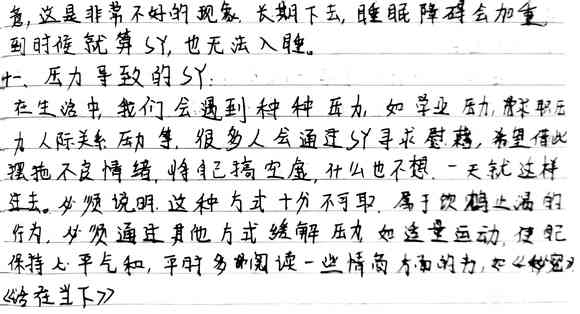 惫,这是非常不好的现象,长期下去,睡眠障碍会加重
到时候就算SY,也无法入睡。
十一、压力导致的SY.
在生活中,我们会遇到种种压力,如学业压力,求职压
力人际关系压力等,很多人会通过SY寻求慰藉,希望借此
摆拖不良情绪,将自己搞空虚,什么也不想,一天就这样
过去。必须说明,这种方式十分不可取,属于饮鸩止渴的
行为,必须通过其他方式缓解压力,如适量运动,使
保持心平气和,平时多阅读一些情商方面的书,如《秘密》
《活在当下》